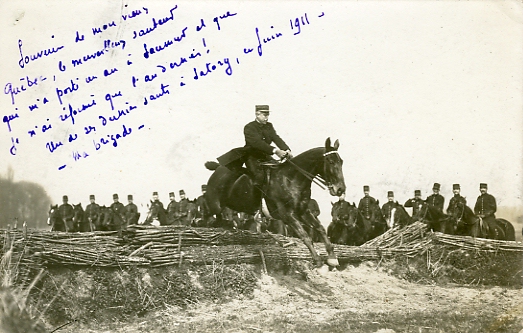 Souvenir de mon vieux
Québec, le merveilleux sauteur
qui m'a porté un an à Saumur et que
je n'ai réformé que l'an dernier !
Un de ses derniers sauts à Satory, en Juin 1911 -
- Ma brigade -